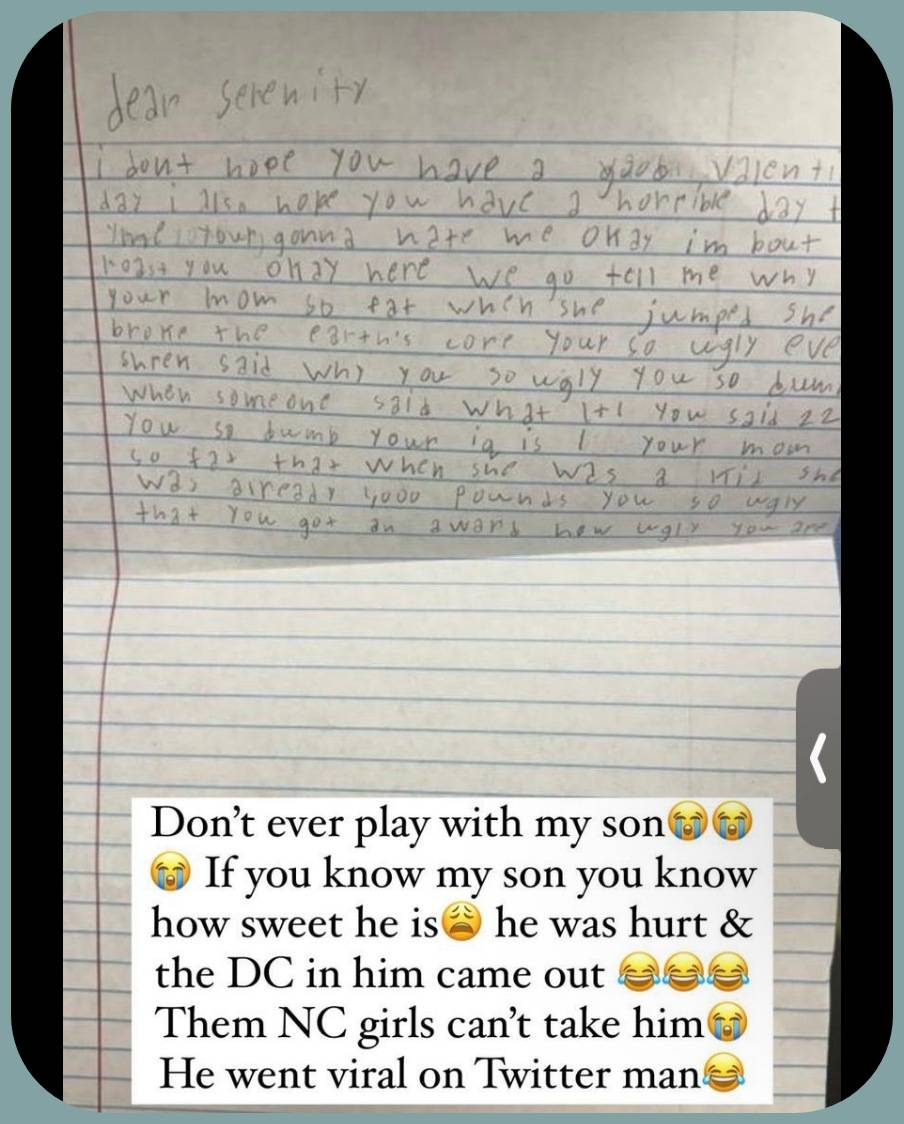 dear serenity
i dont hope you have a good valenti
day i also hope you have a horrible day t
your gonna hate me okay im bout
roast you okay here we go tell me why
your mom so fat when she jumped she
broke the earth's core your so ugly eve
shrek said why you so ugly you so dum
when someone said what 1+1 you said 22
you so dumb your iq is 1 your mom
so fat that when she was a kid she
was already 1,000 pounds you so ugly
that you got an award how ugly you are
Don't ever play with my son😭😭
😭 If you know my son you know
how sweet he is😩 he was hurt &
the DC in him came out 😂😂😂
Them NC girls can't take him😭
He went viral on Twitter man😂